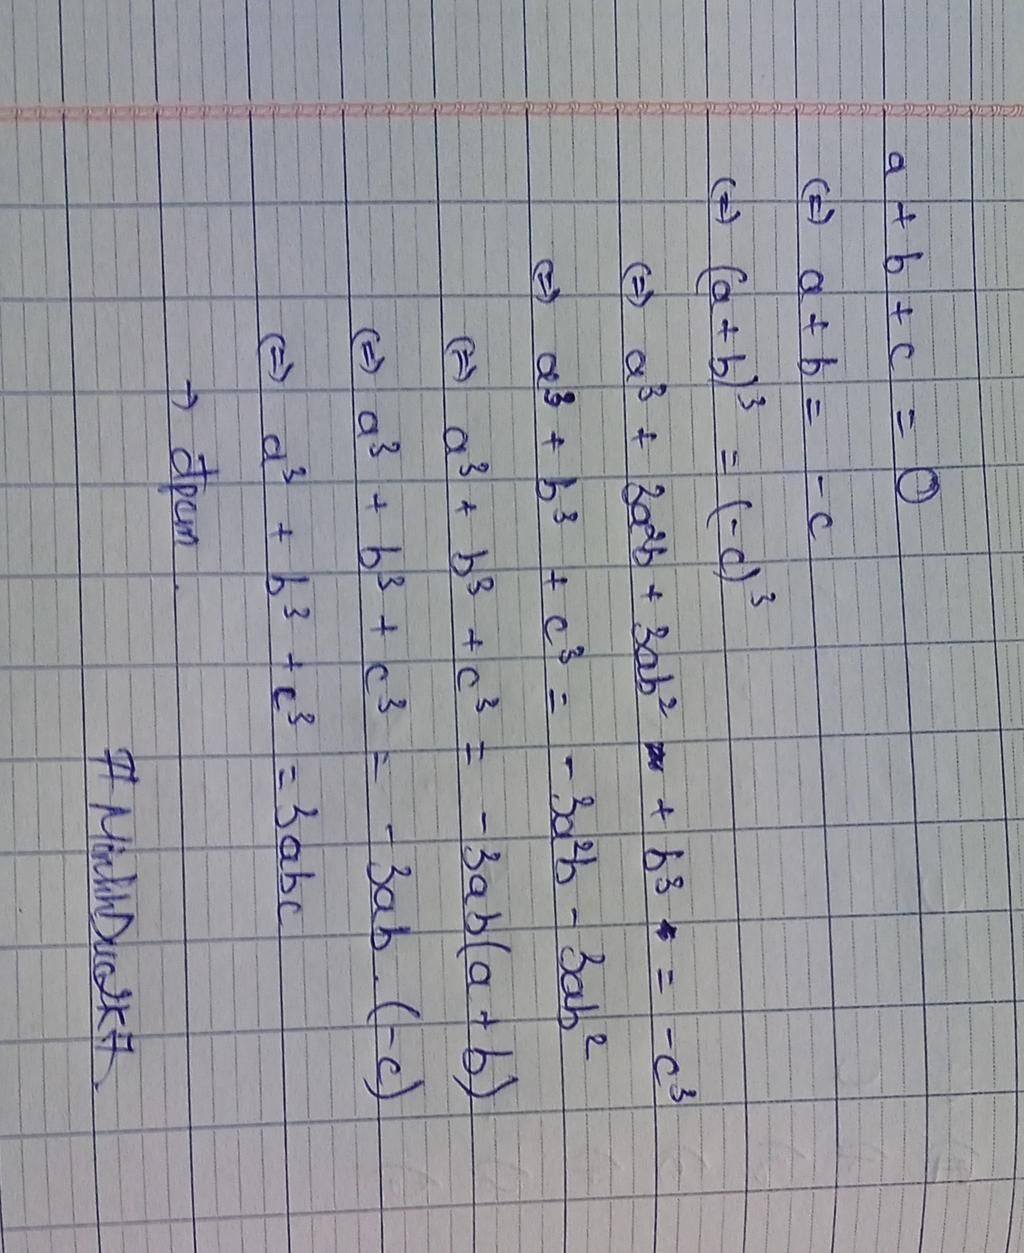 a + b + c = 0
(=) a + b = -c
(=) (a + b)³ = (-c)³
(=) a³ + 3a²b + 3ab² + b³ = -c³
(=) a³ + b³ + c³ = -3a²b - 3ab²
(=) a³ + b³ + c³ = -3ab(a + b)
(=) a³ + b³ + c³ = -3ab.(-c)
(=) a³ + b³ + c³ = 3abc
→ đpcm.
#MinhDuc2k7